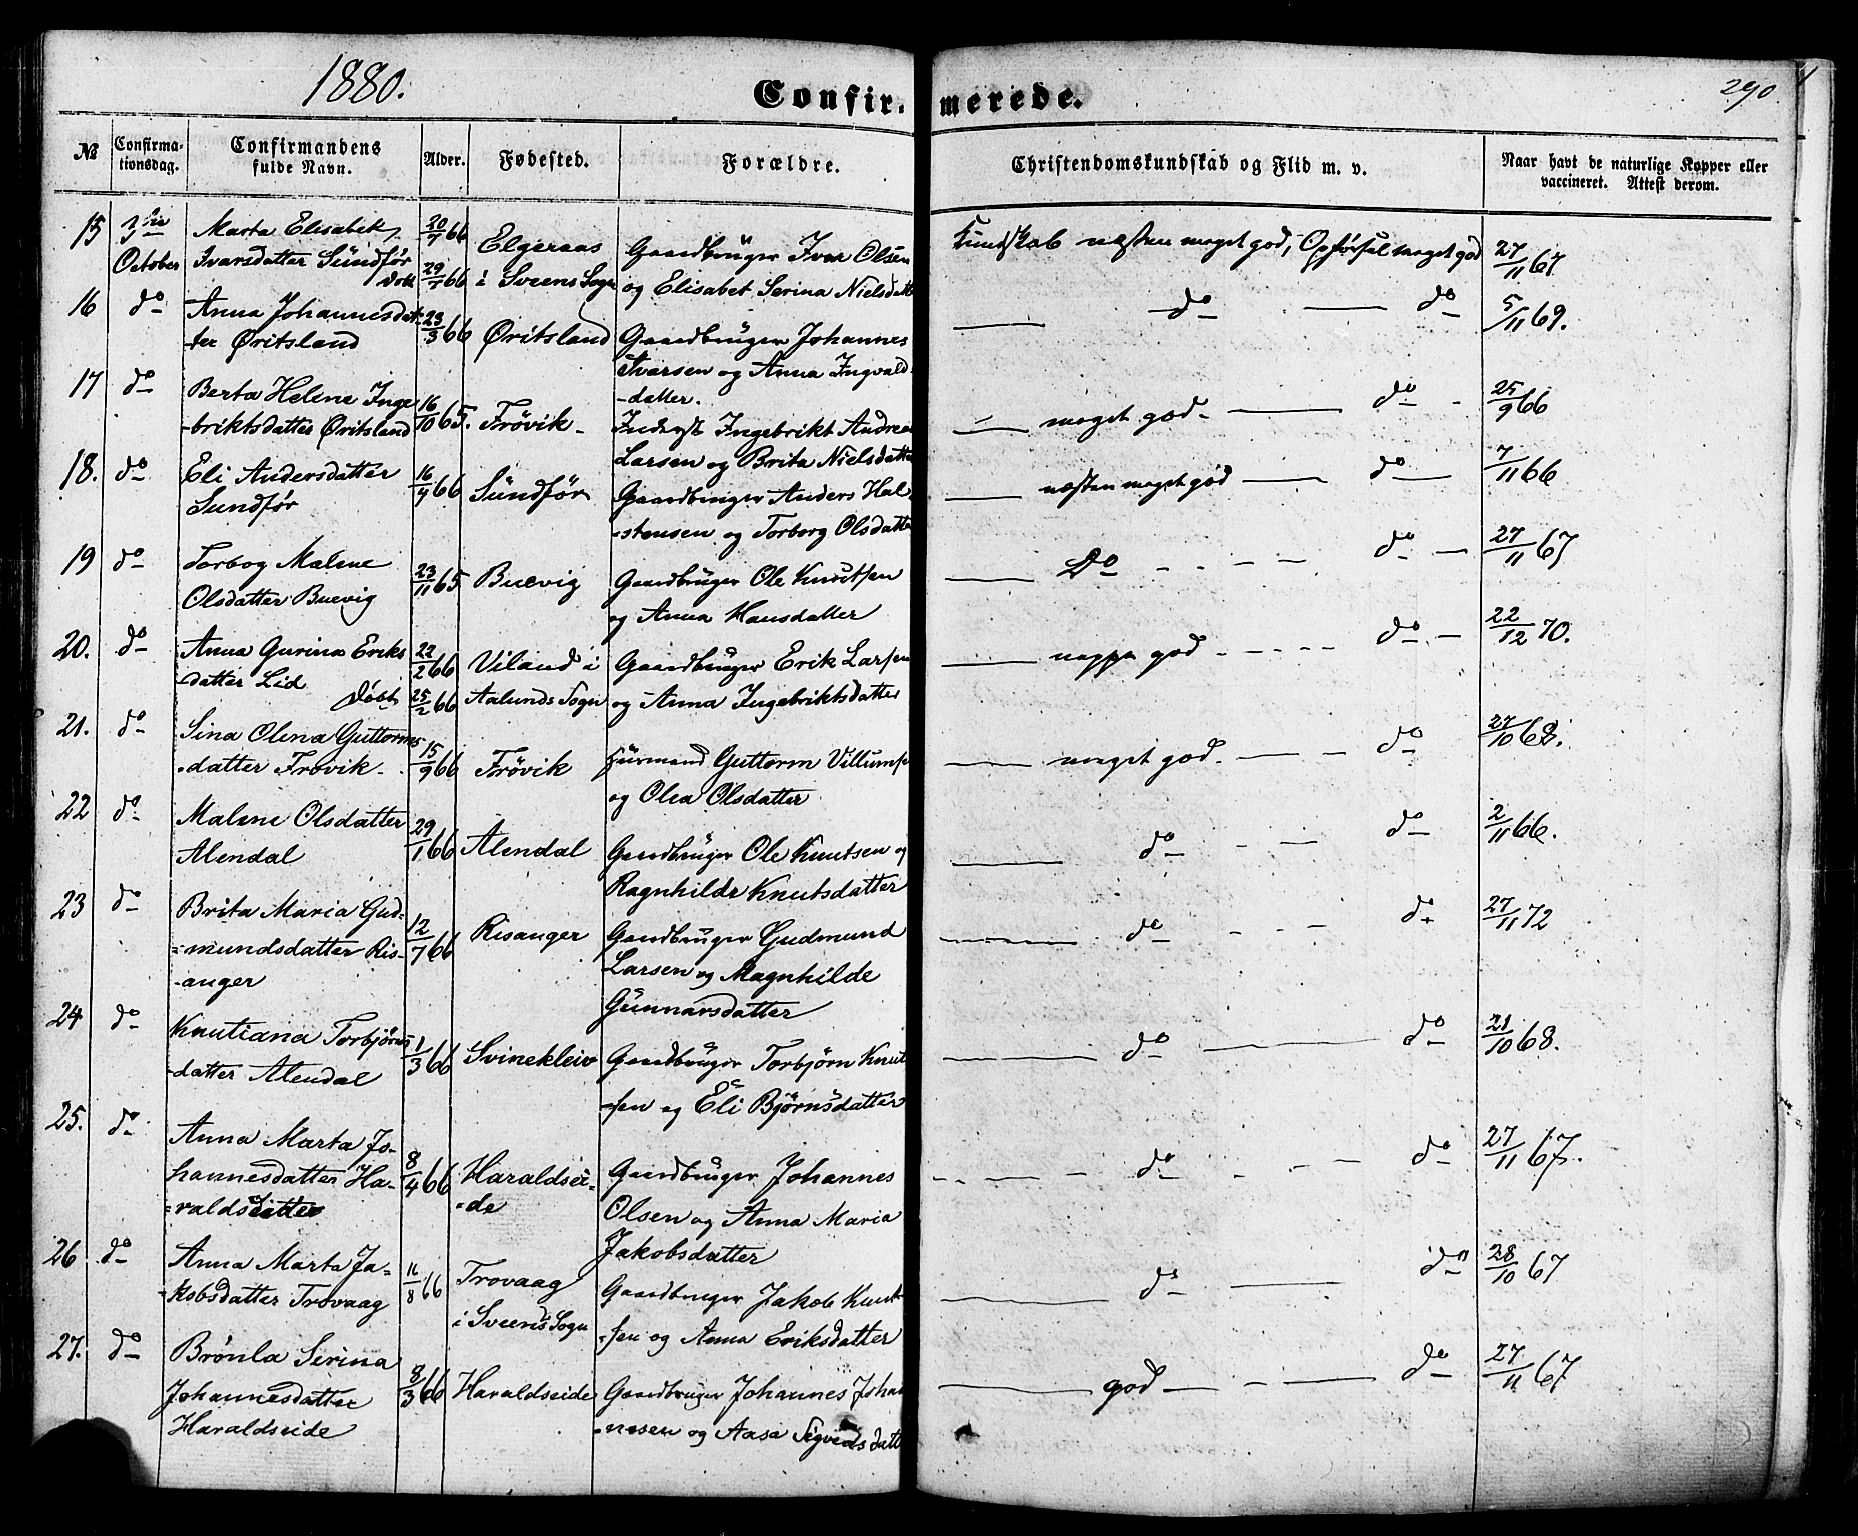 1880.
Confir- merede.
290
№ Confirma-tionsdag. Confirmandens fulde Navn. Alder. Fødested. Forældre. Christendomskundskab og Flid m. v. Naar havt de naturlige Kopper eller vaccineret. Attest derom.
15 3die Marta Elisabet 20/7 66 Elgeraas Gaardbruger Ivar Olsen Kundskab næsten meget god, Opførsel meget god 27/11 67
October Ivarsdatter Sündför döbt 29/7 66 i Sveens Sogn og Elisabet Serina Nielsdatt
16 do Anna Johannesdat- 23/3 66 Øritsland Gaardbruger Johannes do do 5/11 69.
ter Øritsland Ivarsen og Anna Ingvald-
-datter.
17 do Berta Helene Inge 16/10 65. Frövik Inderst Ingebrikt Andrea meget god do 25/9 66
-briktsdatter Øritsland Larsen og Brita Nielsdatte
18. do Eli Andersdatter 16/4 66 Sündför Gaardbruger Anders Hal næsten meget god do 7/11 66
Sundför -stensen og Torborg Olsdatte
19 do Torbog Malene 23/11 65 Buevig Gaardbruger Ole Knutsen Do do 27/11 67
Olsdatter Buevig og Anna Hansdatter
20. do Anna Gurina Eriks 22/2 66 Viland i Gaardbruger Erik Larsen god do 22/12 70.
-datter Lid Döbt 25/2 66 Aalunds Sogn og Anna Ingebriktsdatter
21. do Sina Olena Guttorms 15/9 66 Frövik Huusmand Guttorm Villumse meget god do 27/10 68.
-datter Frövik og Olea Olsdatter
22 do Malene Olsdatter 29/1 66 Alendal Gaardbruger Ole Knutsen og do do 2/11 66.
Alendal Ragnhilde Knutsdatter
23 do Brita Maria Gud- 12/7 66 Risanger Gaardbruger Gudmund do do 27/11 72
=mundsdatter Ris- Larsen og Magnhilde
-anger Gunnarsdatter
24 do Knutiana Torbjörns 1/3 66 Svinekleiv Gaardbruger Torbjörn Knut do do 21/10 68.
-datter Alendal -sen og Eli Björnsdatter
25. do Anna Marta Jo- 8/4 66 Haraldsei- Gaardbruger Johannes do do 27/11 67.
hannesdatter Ha- -de Olsen og Anna Maria
=raldsdatter Jakobsdatter
26 do Anna Marta Ja- 16/8 66 Trovaag Gaardbruger Jakob Knut do do 28/10 67
=kobsdatter Trovaag i Sveens Sogn -sen og Anna Eriksdatter
27. do Brönla Serina 8/3 66 Haraldseide Gaardbruger Johannes Johan god do 27/11 67
Johannesdatter -nesen og Aasa Sigvordsdatt
Haraldseide